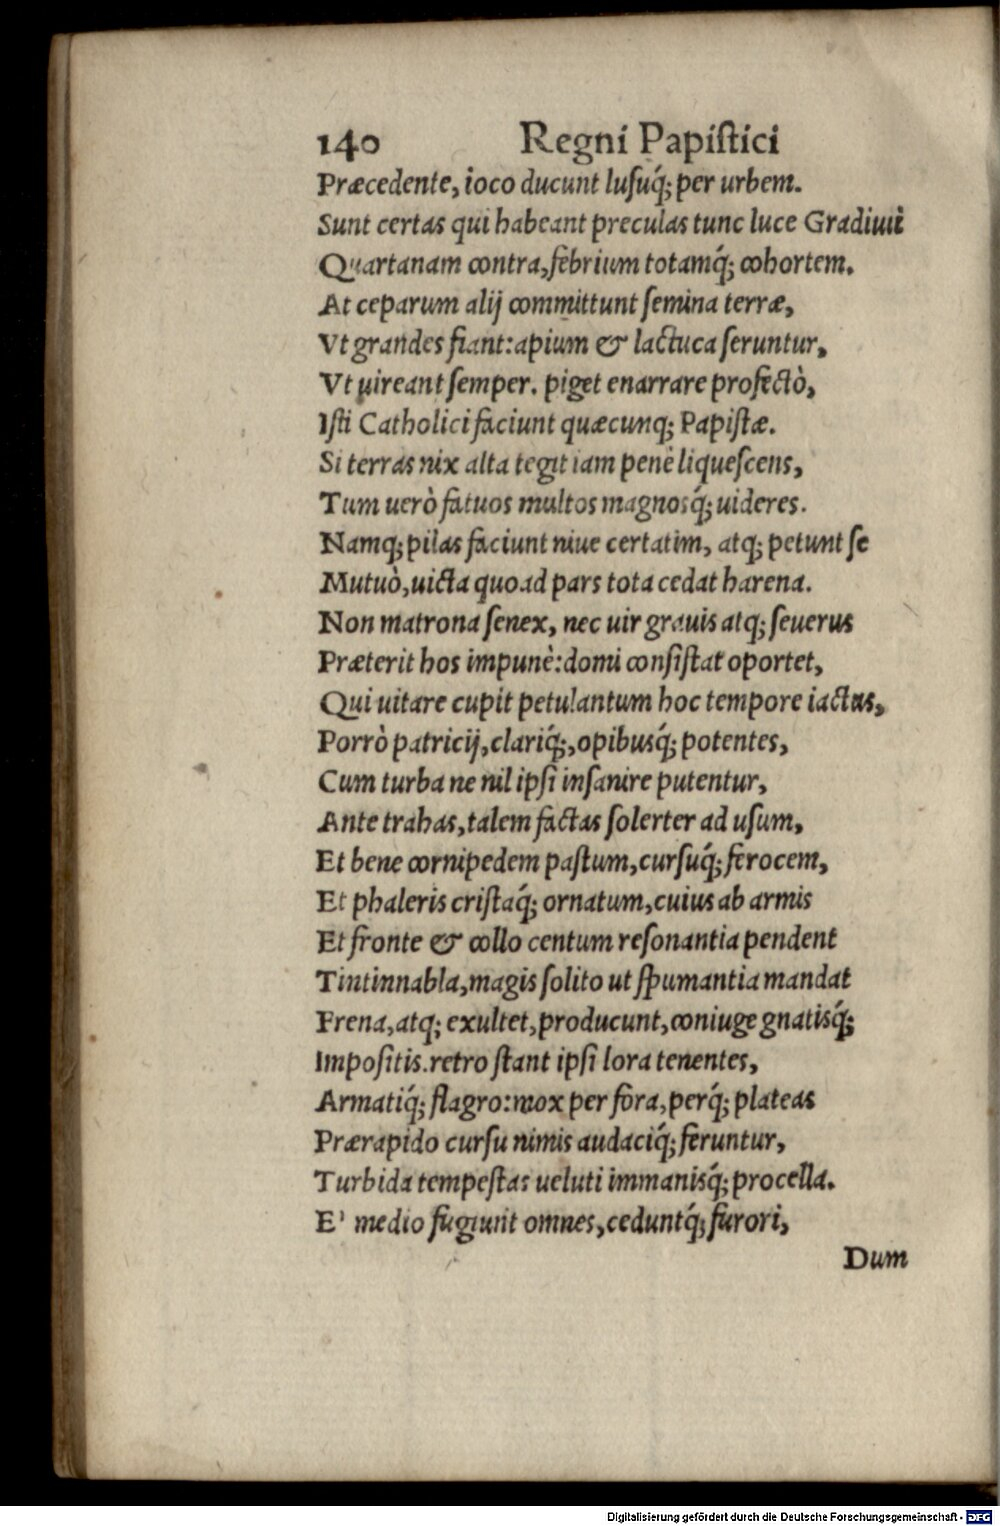 140 Regni Papiſtici
Præcedente, ioco ducunt luſuq́; per urbem.
Sunt certas qui habeant preculas tunc luce Gradiuii
Quartanam contra, febrium totamq́; cohortem.
At ceparum alij committunt ſemina terræ,
Vt grandes fiant: apium & lactuca ſeruntur,
Vt uireant ſemper. piget enarrare profectò,
Iſti Catholici faciunt quæcunq; Papiſtæ.
Si terras nix alta tegit iam penè liqueſcens,
Tum uerò fatuos multos magnosq́; uideres.
Namq; pilas faciunt niue certatim, atq; petunt ſe
Mutuò, uicta quoad pars tota cedat harena.
Non matrona ſenex, nec uir grauis atq; ſeuerus
Præterit hos impunè: domi conſiſtat oportet,
Qui uitare cupit petulantum hoc tempore iactus,
Porrò patricij, clariq́;, opibusq́; potentes,
Cum turba ne nil ipſi inſanire putentur,
Ante trahas, talem factas ſolerter ad uſum,
Et bene cornipedem paſtum, curſuq́; ferocem,
Et phaleris criſtaq́; ornatum, cuius ab armis
Et fronte & collo centum reſonantia pendent
Tintinnabla, magis ſolito ut ſpumantia mandat
Frena, atq; exultet, producunt, coniuge gnatisq́;
Impoſitis. retro ſtant ipſi lora tenentes,
Armatiq́; flagro: mox per fora, perq́; plateas
Prærapido curſu nimis audaciq́; feruntur,
Turbida tempeſtas ueluti immanisq́; procella.
E' medio fugiunt omnes, ceduntq́; furori,
Dum
Digitalisierung gefördert durch die Deutsche Forschungsgemeinschaft - DFG